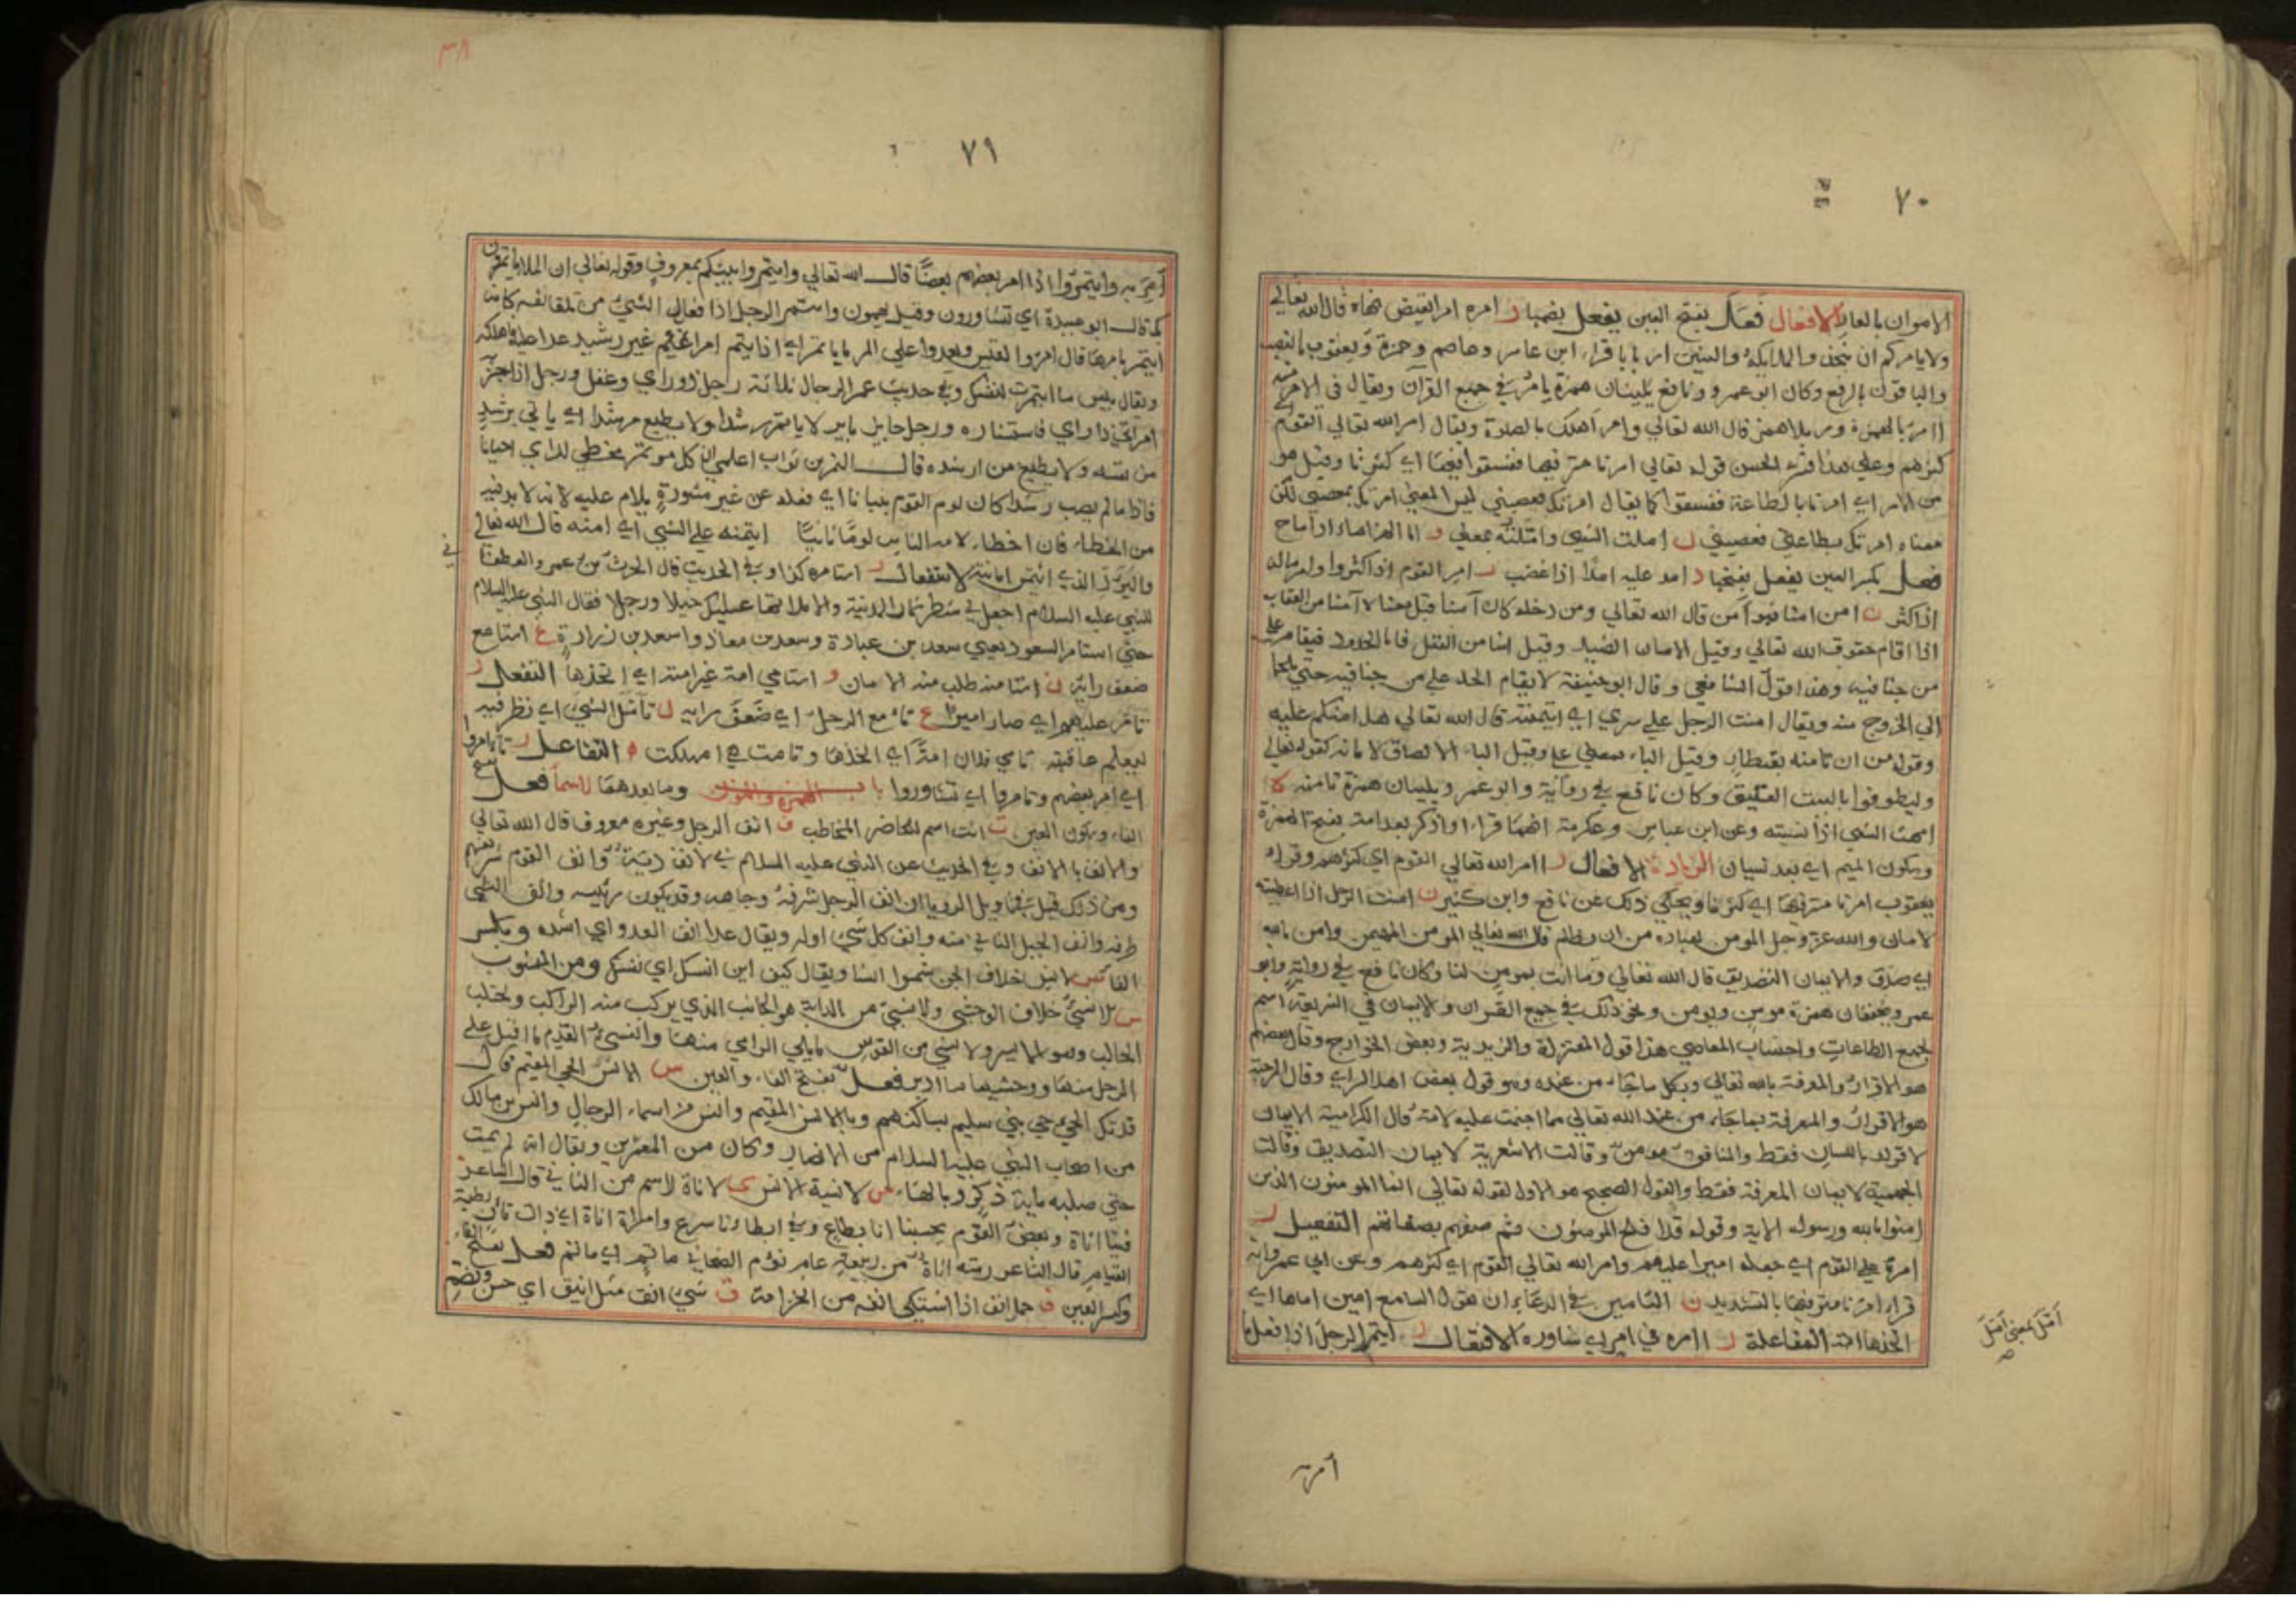 ٧٠
الاموان بالعال الافعال فَعَلَ بفتح العين يفعل بضمها ر امره امرا نقيض نهاه قال الله تعالى
ولا يامركم ان تتخذوا الملايكة والنبيين اربابا قراء ابن عامر وعاصم وحمزة ويعقوب بالنصب
والباقون بالرفع وكان ابو عمرو ونافع يلينان همزة يامر في جميع القرآن ويقال في الامر منه
اامر بالهمزة ومر بلا همز قال الله تعالي وامر اهلك بالصلوة ويقال امر الله تعالي القوم اي
كثرهم وعلي هذا فسر الحسن قوله تعالي امرنا مترفيها ففسقوا فيها اي كثرنا وقيل هو
من الامر اي امرنا بالطاعة ففسقوا كما يقال امرتك فعصيتني ليس المعني امرتك بمعصيتي لكن
معناه امرتك بطاعتي فعصيتني ل املت الشي واملته بمعني و اما الهر اماء اذا صاح
فعل بكسر العين يفعل بفتحها د امد عليه امدا اذا غضب ر امر القوم اذا كثروا وامر ماله
اذا كثر ن امن امنا فهو آمن قال الله تعالي ومن دخله كان آمنا قيل معناه آمنا من العقاب
اذا اقام حقوق الله تعالي وقيل الامان الصيد وقيل امنا من القتل فاما الحدود فيقام عليه
من جنا فيه وهذا قول الشافعي وقال ابو حنيفة لا يقام الحد علي من جنا فيه حتي يلجا
الي الخروج منه ويقال امنت الرجل علي سري اي ايتمنته قال الله تعالي هل امنكم عليه
وقوله من ان تامنه بقنطار وقيل الباء بمعني علي وقيل الباء الالصاق لا مانه كقوله تعالي
وليطوفوا بالبيت العتيق وكان نافع في رواية وابو عمرو يلينان همزة تامنه ه
امهت الشي اذا نسيته وعن ابن عباس وعكرمة انهما قراء واذكر بعد امه بفتح الهمزة
وسكون الميم اي بعد نسيان الزيادة الافعال ر اامر الله تعالي القوم اي كثرهم وقراء
يعقوب امرنا مترفيها اي كثرنا ويحكي ذلك عن نافع وابن كثير ن امنت الرجل اذا اعطيته
لامان والله عز وجل المومن لعباده من ان يظلم قال الله تعالي المومن المهيمن وامن بالله
اي صدق والايمان التصديق قال الله تعالي وما انت بمومن لنا وكان نافع في رواية وابو
عمرو يخففان همزة مومن ويومن ونحو ذلك في جميع القران ولايمان في الشريعة اسم
لجميع الطاعات واجتناب المعاصي هذا قول المعتزلة والزيدية وبعض الخوارج وقال بعضهم
هو الاقرار والمعرفة بالله تعالي وبكل ما جاء من عنده وهو قول بعض اهل الراي وقال المرجية
هو الاقرار والمعرفة بما جاء من عند الله تعالي مما اجتمعت عليه لامة قال الكرامية الايمان
لا قول باللسان فقط والمنافق مومن وقالت الاشعرية لايمان التصديق وقالت
الجهمية لايمان المعرفة فقط والقول الصحيح هو الاول لقوله تعالي انما المومنون الذين
امنوا بالله ورسوله الاية وقوله قد افلح المومنون ثم صفهم بصفاتهم التفعيل ر
امره علي القوم اي جعله اميرا عليهم وامر الله تعالي القوم اي كثرهم وعن ابي عمرو انه
قراء امرنا مترفيها بالتشديد ن التامين في الدعاء ان يقول السامع امين اماها اي
اتخذها امة المفاعلة ر اامره في امر اي شاوره الافتعال ر ايتمر الرجل اذا فعل ما
اَمَلّ بمعني اَمَلَّ
أمر به
٧١
٣٨
أُمِرَ به وايتمروا اذا امر بعضهم بعضًا قال الله تعالي وايتمروا بينكم بمعروف وقوله تعالي ان الملا ياتمرون
كما قال ابو عبيدة اي تشاورون وقيل يهمون وايتمر الرجل اذا فعل الشي من تلقا نفسه كان
ايتمر بامرها قال امرؤ القيس ويعدوا علي المر ما ياتمر اي اذا يتم امرا غير رشيد عدا عليه فاهلكه
ويقال بيس ما ايتمرت لنفسك وفي حديث عمر الرجال ثلاثة رجل ذو راي وعقل ورجل اذا حزنه
امر اتي ذا راي فاستشاره ورجل حاير باير لا ياتمر رشدا ولا يطيع مرشدا اي لا ياتي برشد
من نفسه ولا يطيع من ارشده قال النمر بن تولب اعلمي ان كل موتمر مخطي لراي احيانا
فاذا ما لم يصب رشدا كان لوم القوم بنيانا اي فعله عن غير مشورة يلام عليه لانه لا بد فيه
من الخطاء فان اخطاء لامه الناس لومًا ثانيًا ايتمنه علي الشي اي امنه قال الله تعالي في
واليود الذي ائتمن امانته الاستفعال ر استامره كذا وفي الحديث قال الحرث بن عمرو الغطفاني
للنبي عليه السلام اجعل لي شطر ثمار المدينة والا ملاتها عليك خيلا ورجلا فقال النبي عليه السلام
حتي استامر السعود يعني سعد بن عبادة وسعد بن معاذ واسعد بن زرارة ع استامع
ضعف رايه ن استامنه طلب منه الامان و استامي امة غير امته اي اتخذها التفعل ر
تامر عليهم اي صار اميرا ع تامع الرجل اي ضعف رايه ل تامل الشي اي نظر فيه
ليعلم عاقبته تامي فلان امة اي اتخذها وتامت هي املكت ه التفاعل ر تامروا
اي امر بعضهم وتامروا اي تشاوروا باب الهمزة والنون وما بعدهما الاسما فعل بفتح
الفاء وسكون العين ت انت اسم للحاضر المخاطب ف انف الرجل وغيره معروف قال الله تعالي
والانف بالانف وفي الحديث عن النبي عليه السلام في لانف دية وانف القوم شريفهم
ومن ذلك قيل في تاويل الرويا ان انف الرجل شرفه وجاهه وقد يكون رئيسه وانف الشي
طرفه وانف الجبل الناتي منه وانف كل شي اوله ويقال عدا انف العدو اي اشده وبكسر
الفاء س لانس خلاف الجن سموا انسا ويقال كيف ابن انسك اي نفسك ومن المنسوب
س لانسي خلاف الوحشي ولانسي من الدابة هو الجانب الذي يركب منه الراكب ويحتلب
الحالب وهو الايسر ولانسي من القوس مايلي الرامي منها وانسي القدم ما اقبل علي
الرجل منها ووحشيها ما ادبر فعل بفتح الفاء والعين س الانس الحي المقيم قال
قد نكل الحي حي بني سليم بساكنهم وبالانس المقيم وانس من اسماء الرجال وانس بن مالك
من اصحاب النبي عليه السلام من الانصار وكان من المعمرين ويقال انه لم يمت
حتي صلبه ماية ذكر وبالهاء س لانسة الانس ي لاناة لاسم من التاني قال الشاعر
فينا اناة وبعض القوم يحسبنا انا بطاع وفي ابطاءنا سرع وامراة اناة اي ذات تان بطية
القيام قال الشاعر رمته اناة من ربيعة عامر نووم الضحا في ماتم اي ماتم فعل بفتح الفاء
وكسر العين ف جمل انف اذا اشتكي انفه من الخزامة ق شي انق مثل انيق اي حسن وبضم